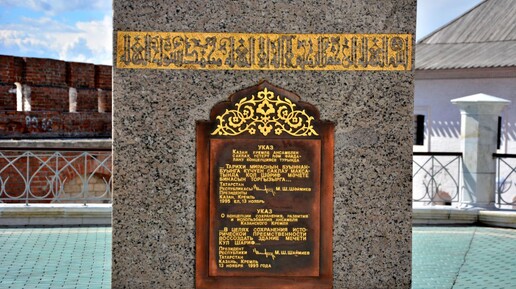 УКАЗ
Казан Кремле ансамблен
саклау, үстерү һәм файда-
лану концепциясе турында
Тарихи мирасның буыннан-
буынга күчүен саклау макса-
тында, Кол Шәриф мәчете
бинасын торгызырга...
Татарстан
Республикасы
Президенты М.Ш.Шәймиев
Казан, Кремль
1995 ел, 13 ноябрь
УКАЗ
О концепции сохранения, развития
и использования ансамбля
Казанского Кремля
В целях сохранения исто-
рической преемственности
воссоздать здание мечети
Кул Шариф...
Президент
Республики М.Ш.Шаймиев
Татарстан
Казань, Кремль
13 ноября 1995 года